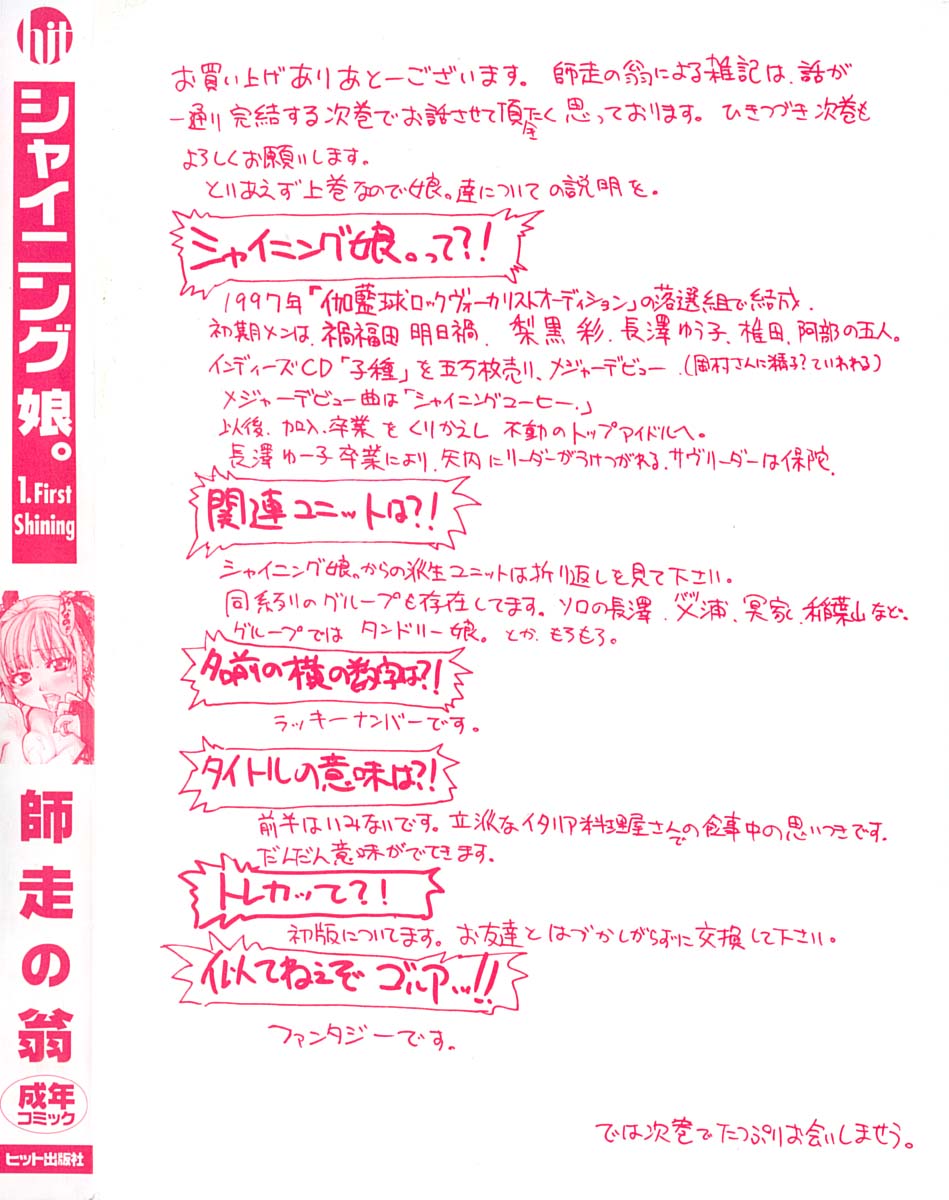 hit
シャイニング娘。
1.First
Shining
師走の翁
成年
コミック
ヒット出版社
お買い上げありあとーございます。 師走の翁による雑記は、話が
一通り完結する次巻でお話させて頂たく思っております。 ひきつづき次巻も
よろしくお願いします。
とりあえず上巻なので娘。達についての説明を。
シャイニング娘。って?!
1997年「伽藍球ロックヴォーカリストオーディション」の落選組で結成.
初期メンは、禍福田 明日禍、 梨黒 彩、長澤ゆう子、椎田、阿部の五人。
インディーズCD「子種」を五万枚売り、メジャーデビュー.(岡村さんに精子?ていわれる)
メジャーデビュー曲は「シャイニングコーヒー.」
以後、加入、卒業をくりかえし 不動のトップアイドルへ。
長澤ゆー子卒業により、矢内にリーダーがうけつがれる、サヴリーダーは保陀.
関連ユニットは?!
シャイニング娘。からの派生ユニットは折り返しを見て下さい。
同系列のグループも存在してます。ソロの長澤、 浦、冥家、稲葉山など、
グループでは タンドリー娘。とか、もろもろ。
名前の横の数字は?!
ラッキーナンバーです。
タイトルの意味は?!
前半はいみないです。立派なイタリア料理屋さんでの食事中の思いつきです.
だんだん意味がでてきます.
トレカッて?!
初版についてます。お友達とはづかしがらずに交換して下さい。
似てねえぞ ゴルアッ!!
ファンタジーです。
では次巻でたっぷりお会いしませう。